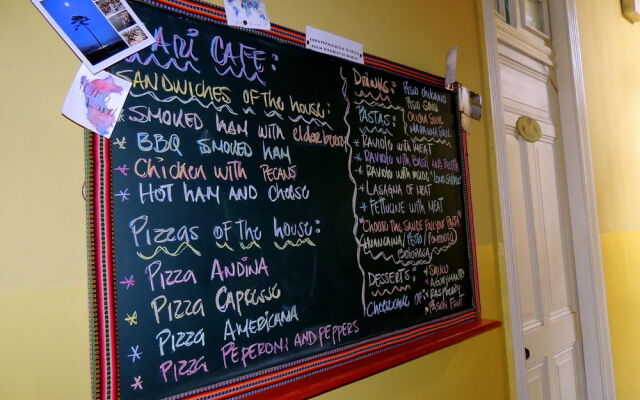 WARI CAFE:
SANDWICHES OF THE HOUSE:
* SMOKED HAM WITH elderberry
* BBQ SMOKED HAM
* Chicken with PECANS
* HOT HAM AND CHEESE
Pizzas of the house:
* PIZZA ANDINA
* PIZZA CAPRESSE
* PIZZA AMERICANA
* PIZZA PEPERONI AND PEPPERS
DRINKS:
PISCO CHILCANO
PISCO SAUR
CHICHA SOUR
PASTAS:
* RAVIOLO WITH MEAT
* RAVIOLO WITH BASIL AND RICOTTA
* RAVIOLO WITH
* LASAGNA OF MEAT
* FETUCINE WITH MEAT
*CHOOSE THE SAUCE FOR YOUR PASTA
HUANCAINA / PESTO / POMODORO
BOLOGNESA
DESSERTS:
CHEESECAKE OF:
* SAUCO
* AGUAYMANTO
* RASPBERRY
* PASSION FRUIT